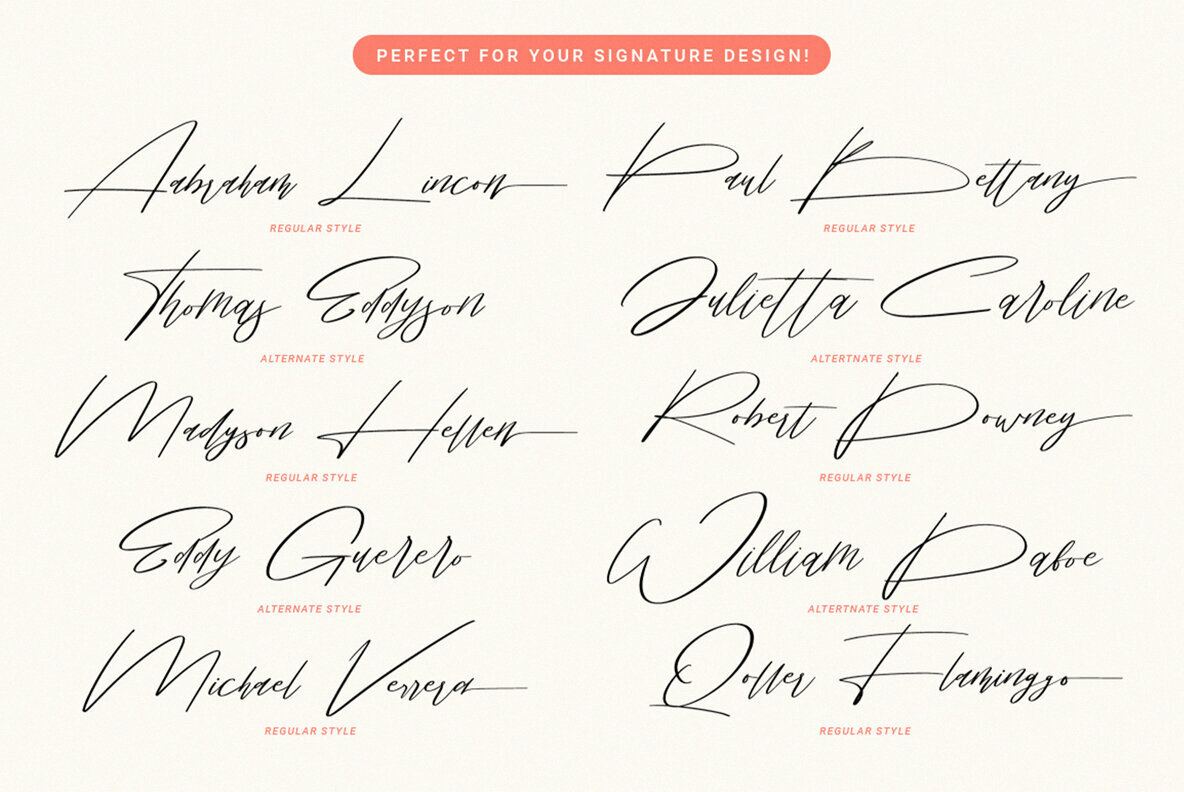 PERFECT FOR YOUR SIGNATURE DESIGN!
Aabraham Lincon
REGULAR STYLE
Paul Bettany
REGULAR STYLE
Thomas Eddyson
ALTERNATE STYLE
Julietta Caroline
ALTERTNATE STYLE
Madyson Hellen
REGULAR STYLE
Robert Downey
REGULAR STYLE
Eddy Guerero
ALTERNATE STYLE
William Dafoe
ALTERTNATE STYLE
Michael Verrera
REGULAR STYLE
Qoller Flaminggo
REGULAR STYLE